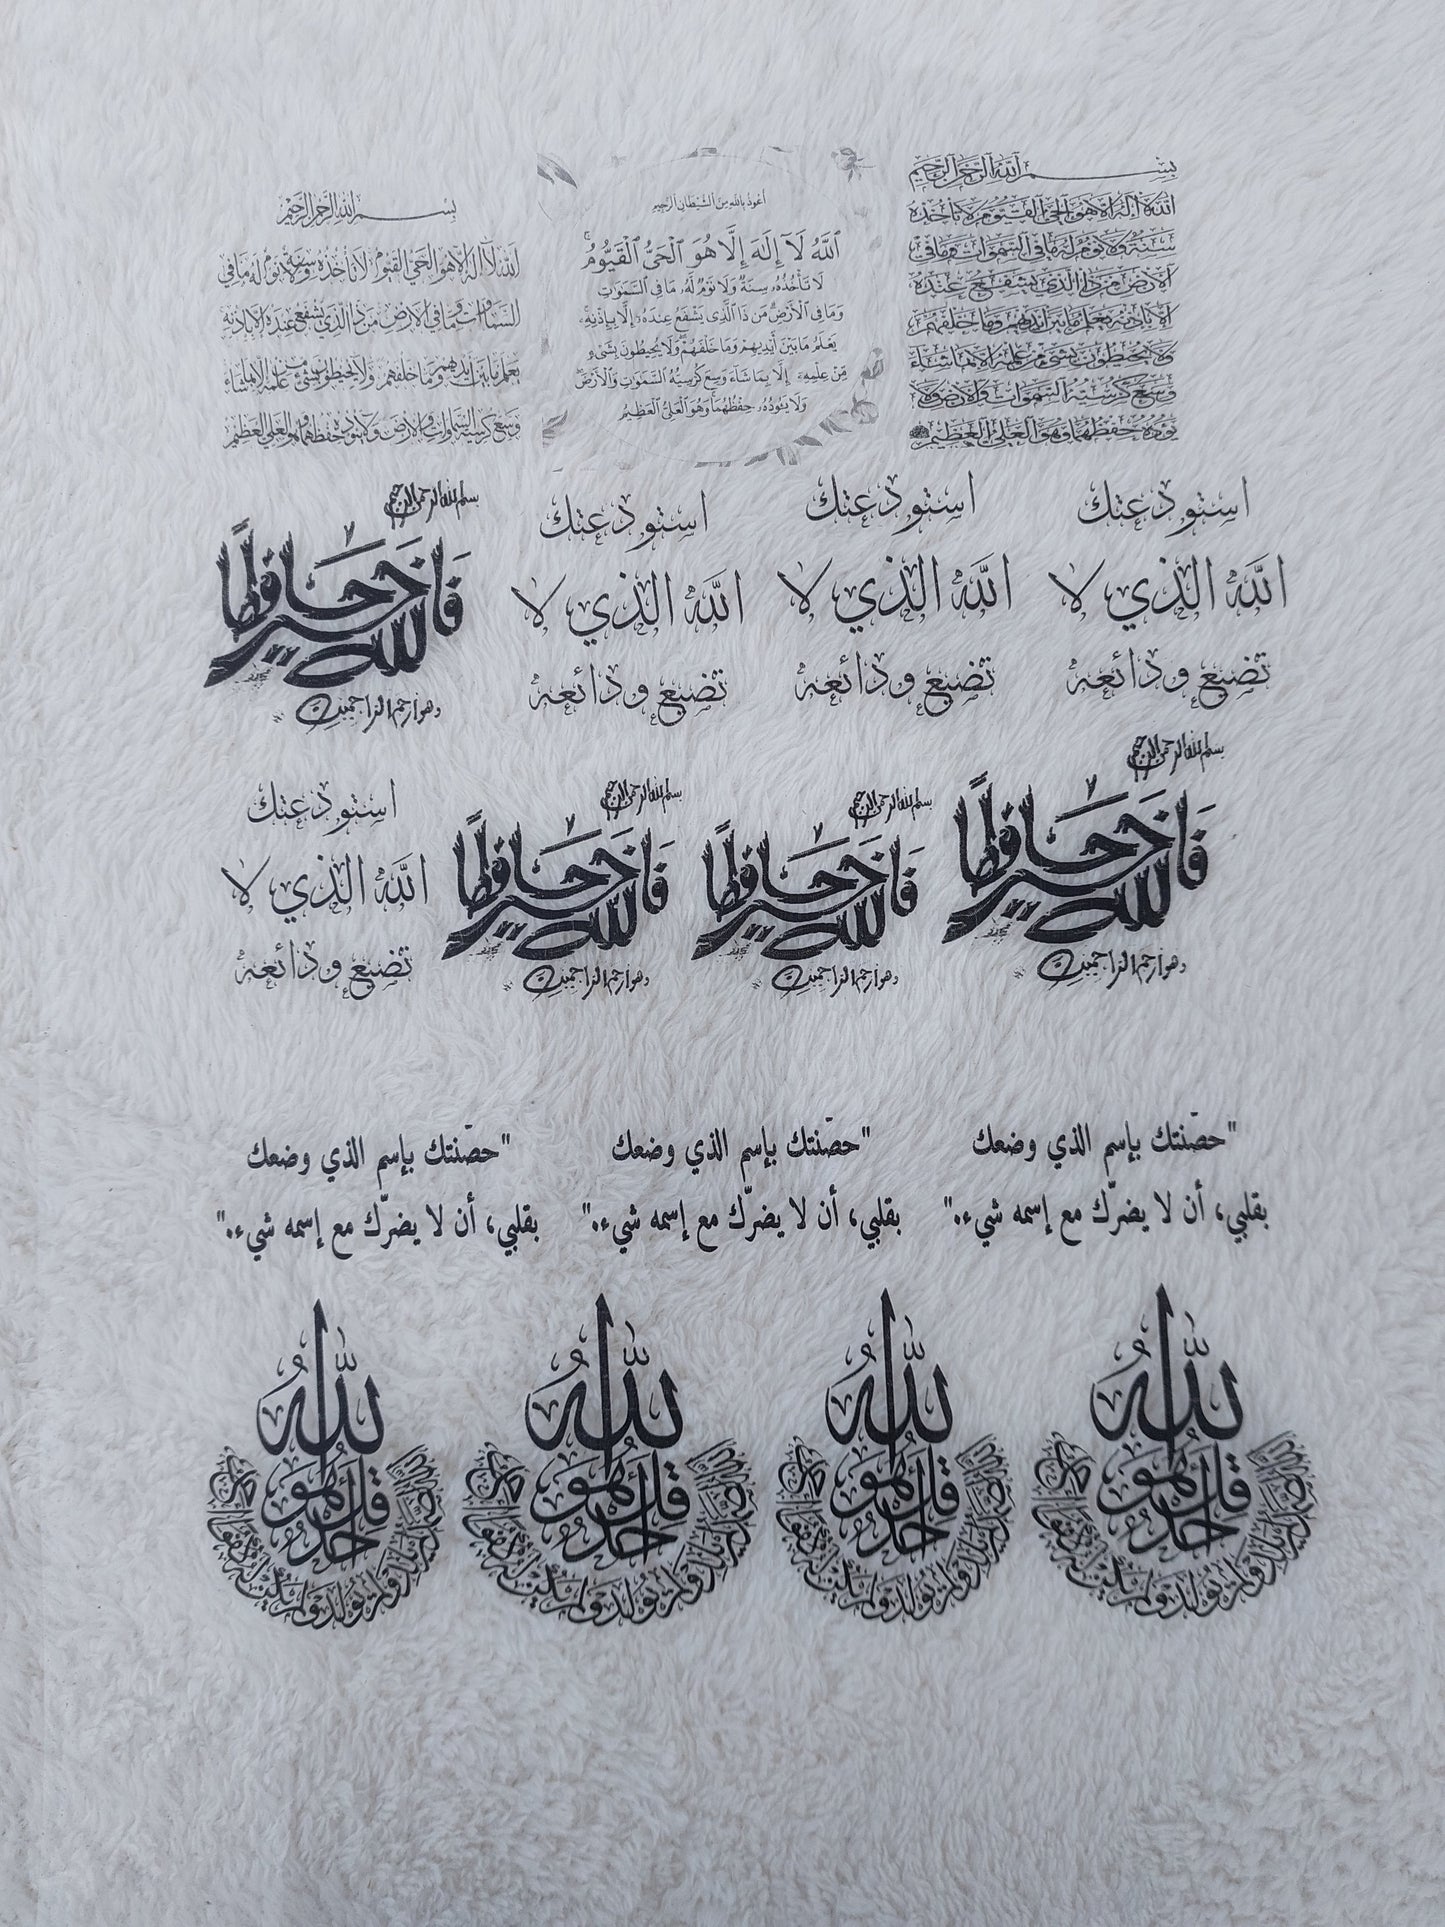 بسم الله الرحمن الرحيم
الله لا إله إلا هو الحي القيوم لا تأخذه
سنة ولا نوم له ما في السموات وما في
الارض من ذا الذي يشفع عنده
إلا بإذنه يعلم ما بين أيديهم وما خلفهم
ولا يحيطون بشئ من علمه إلا بما شاء
وسع كرسيه السموات والارض ولا
يؤده حفظهما وهو العلي العظيم
أعوذ بالله من الشيطان الرجيم
ٱللَّهُ لَآ إِلَٰهَ إِلَّا هُوَ ٱلْحَيُّ ٱلْقَيُّومُ ۚ
لَا تَأْخُذُهُۥ سِنَةٌ وَلَا نَوْمٌ لَّهُۥ مَا فِي ٱلسَّمَٰوَٰتِ
وَمَا فِي ٱلْأَرْضِ مَن ذَا ٱلَّذِي يَشْفَعُ عِندَهُۥٓ إِلَّا بِإِذْنِهِۦ
يَعْلَمُ مَا بَيْنَ أَيْدِيهِمْ وَمَا خَلْفَهُمْ وَلَا يُحِيطُونَ بِشَيْءٍ
مِّنْ عِلْمِهِۦٓ إِلَّا بِمَا شَآءَ وَسِعَ كُرْسِيُّهُ ٱلسَّمَٰوَٰتِ وَٱلْأَرْضَ
وَلَا يَـُٔودُهُۥ حِفْظُهُمَا وَهُوَ ٱلْعَلِيُّ ٱلْعَظِيمُ
بسم الله الرحمن الرحيم
الله لا إله إلا هو الحي القيوم لا تأخذه سنة ولا نوم له ما في
السماوات وما في الارض من ذا الذي يشفع عنده إلا بإذنه
يعلم ما بين أيديهم وما خلفهم ولا يحيطون بشئ من علمه إلا بما شاء
وسع كرسيه السماوات والارض ولا يئوده حفظهما وهو العلي العظيم
استودعتك
اللّٰه الذي لا
تضيع ودائعه
استودعتك
اللّٰه الذي لا
تضيع ودائعه
استودعتك
اللّٰه الذي لا
تضيع ودائعه
بسم الله الرحمن الرحيم
فالله خير حافظاً
وهو ارحم الراحمين
بسم الله الرحمن الرحيم
فالله خير حافظاً
وهو ارحم الراحمين
بسم الله الرحمن الرحيم
فالله خير حافظاً
وهو ارحم الراحمين
بسم الله الرحمن الرحيم
فالله خير حافظاً
وهو ارحم الراحمين
استودعتك
اللّٰه الذي لا
تضيع ودائعه
"حصّنتك بإسم الذي وضعك
بقلبي، أن لا يضرّك مع إسمه شيء."
"حصّنتك بإسم الذي وضعك
بقلبي، أن لا يضرّك مع إسمه شيء."
"حصّنتك بإسم الذي وضعك
بقلبي، أن لا يضرّك مع إسمه شيء."
قل هو الله أحد
الله الصمد لم يلد ولم يولد ولم يكن له كفوا أحد
قل هو الله أحد
الله الصمد لم يلد ولم يولد ولم يكن له كفوا أحد
قل هو الله أحد
الله الصمد لم يلد ولم يولد ولم يكن له كفوا أحد
قل هو الله أحد
الله الصمد لم يلد ولم يولد ولم يكن له كفوا أحد